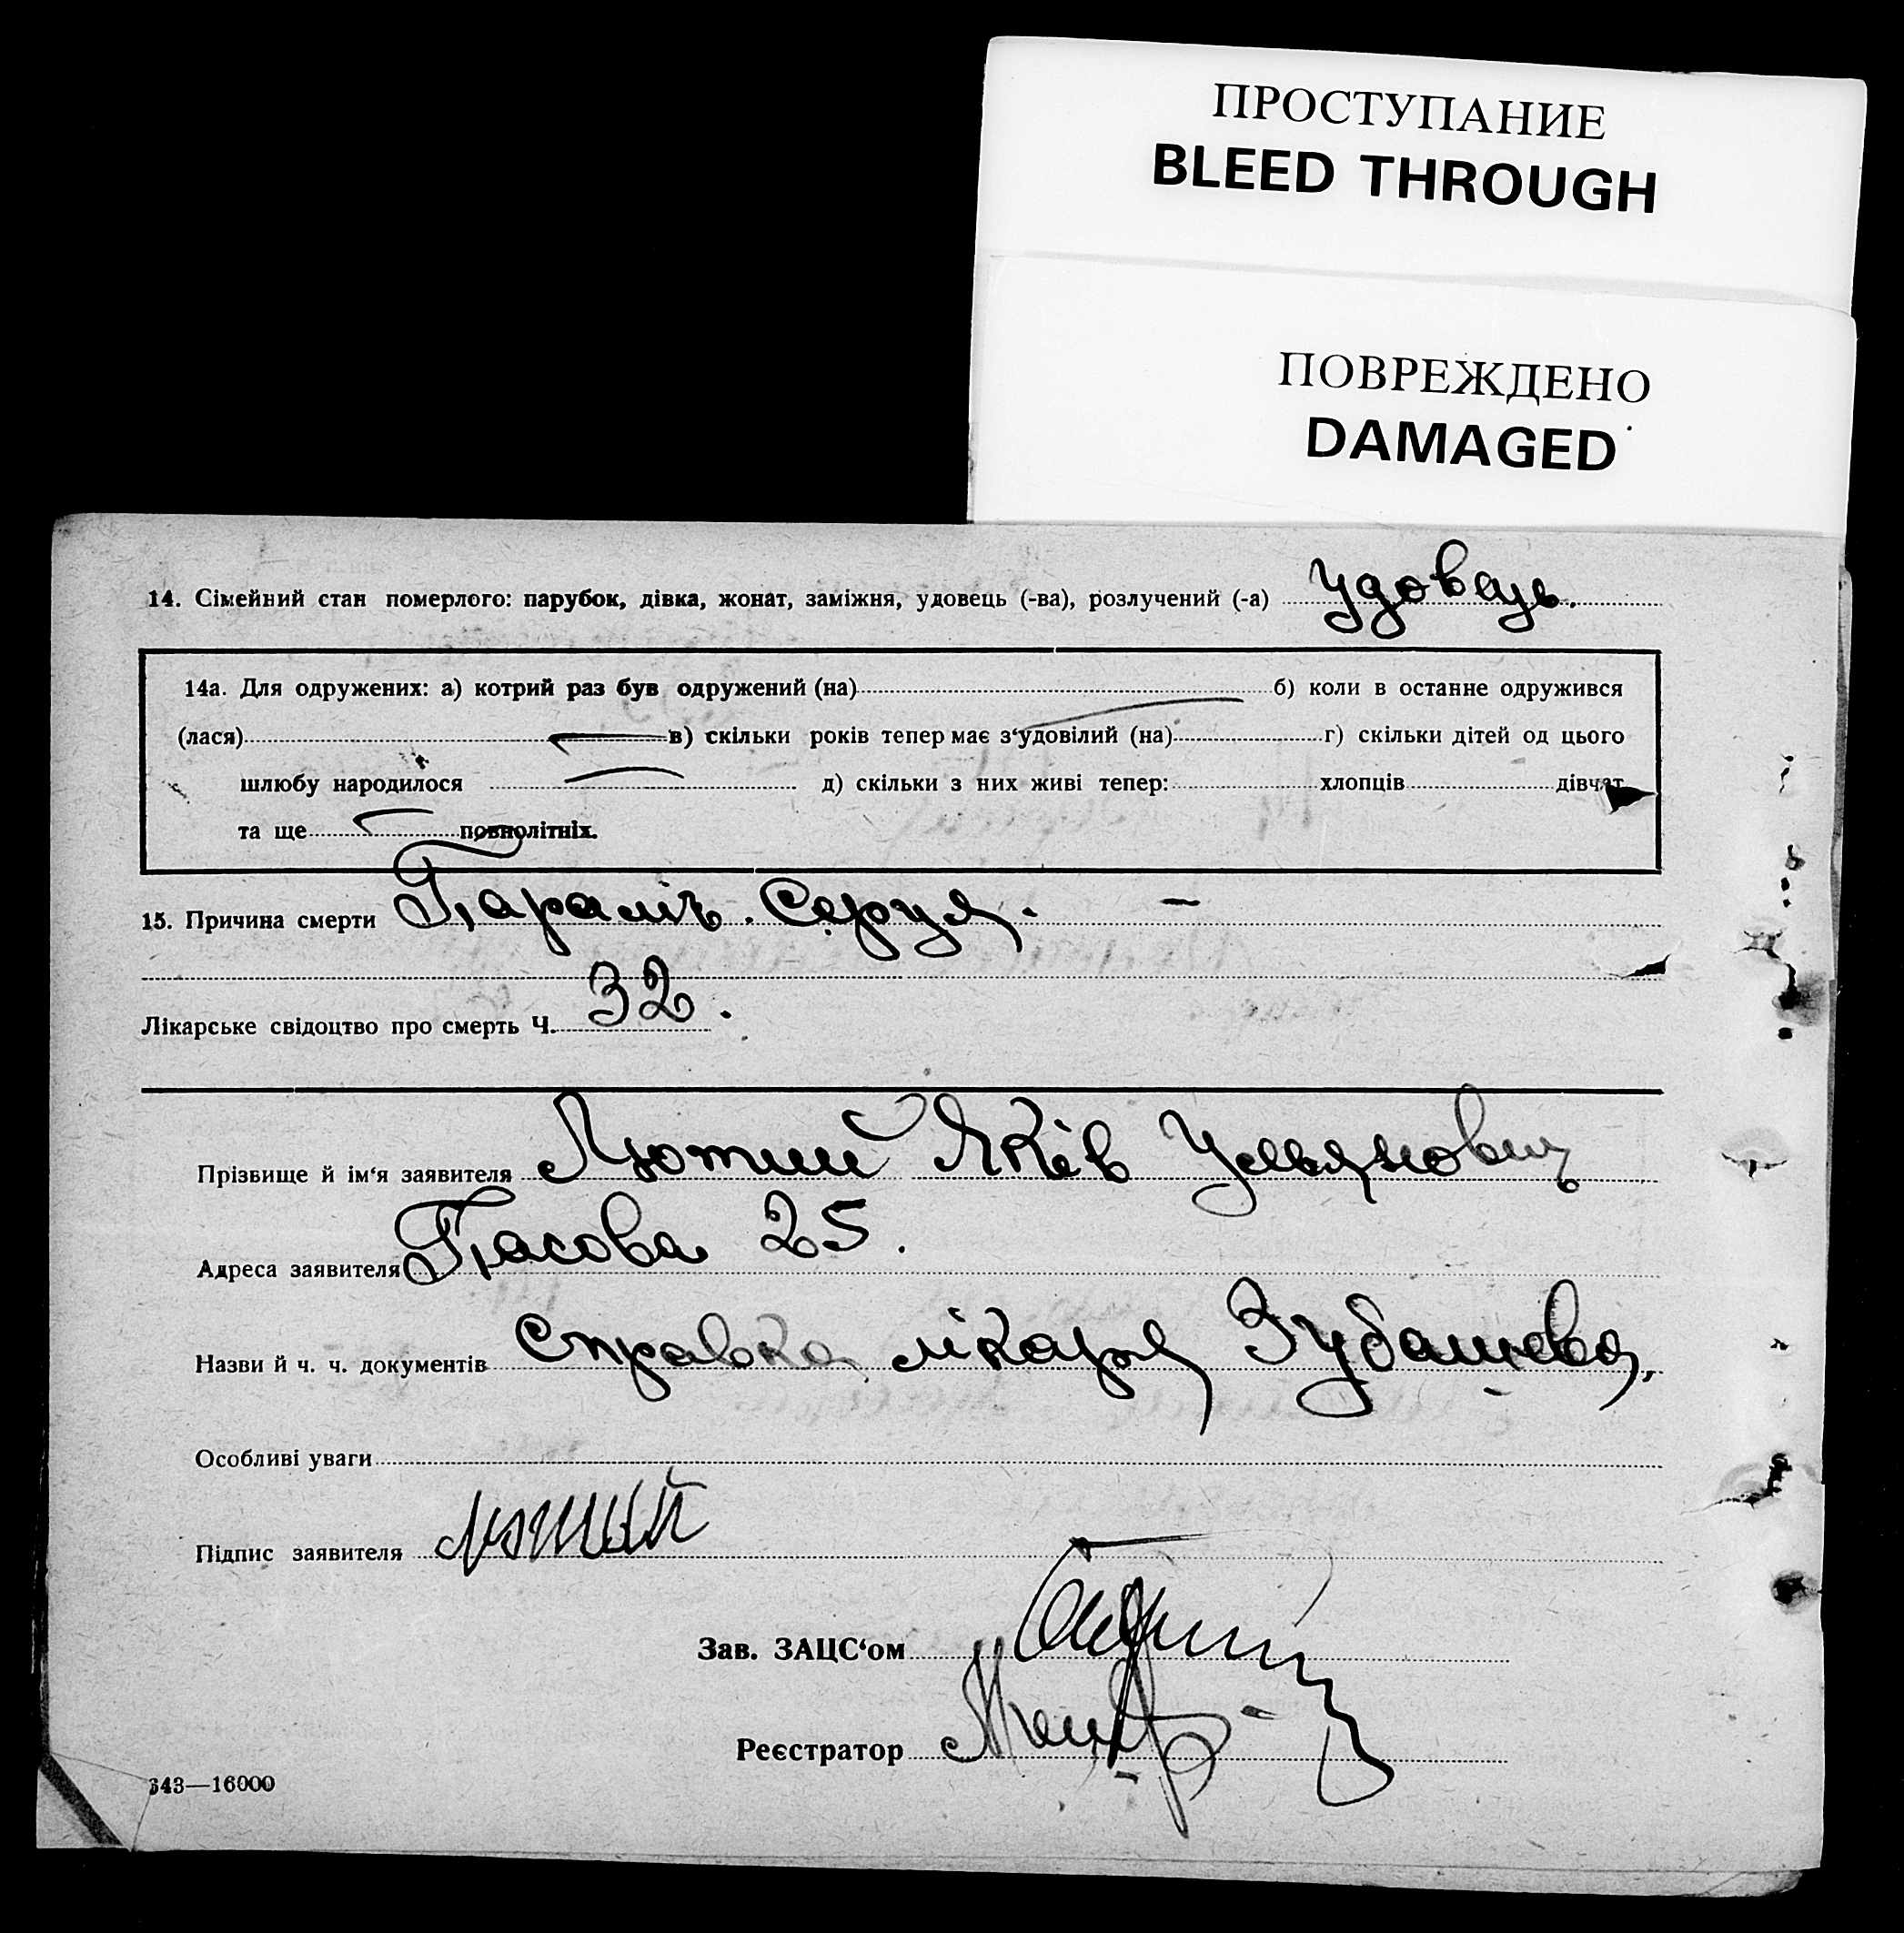 ПРОСТУПАНИЕ
BLEED THROUGH
ПОВРЕЖДЕНО
DAMAGED
14. Сімейний стан померлого: парубок, дівка, жонат, заміжня, удовець (-ва), розлучений (-а) Удовець.
14а. Для одружених: а) котрий раз був одружений (на) б) коли в останне одружився
(лася) в) скільки років тепер має з‘удовілий (на) г) скільки дітей од цього
шлюбу народилося д) скільки з них живі тепер: хлопців дівчат
та ще повнолітніх.
15. Причина смерти Параліч. Серця. –
Лікарське свідоцтво про смерть Ч. 32.
Прізвище й ім‘я заявителя Лютий Яків Ульянович
Адреса заявителя Пасова 25.
Назви й ч. ч. документів Справка лікаря Зубашева,
Особливі уваги
Підпис заявителя Лютий
Зав. ЗАЦС‘ом
Реєстратор
343—16000